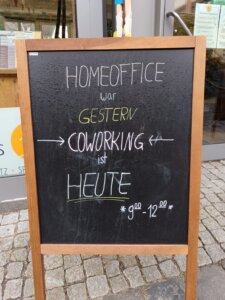 HOMEOFFICE
war
GESTERN
→ COWORKING ←
ist
HEUTE
* 9⁰⁰ - 12⁰⁰ *